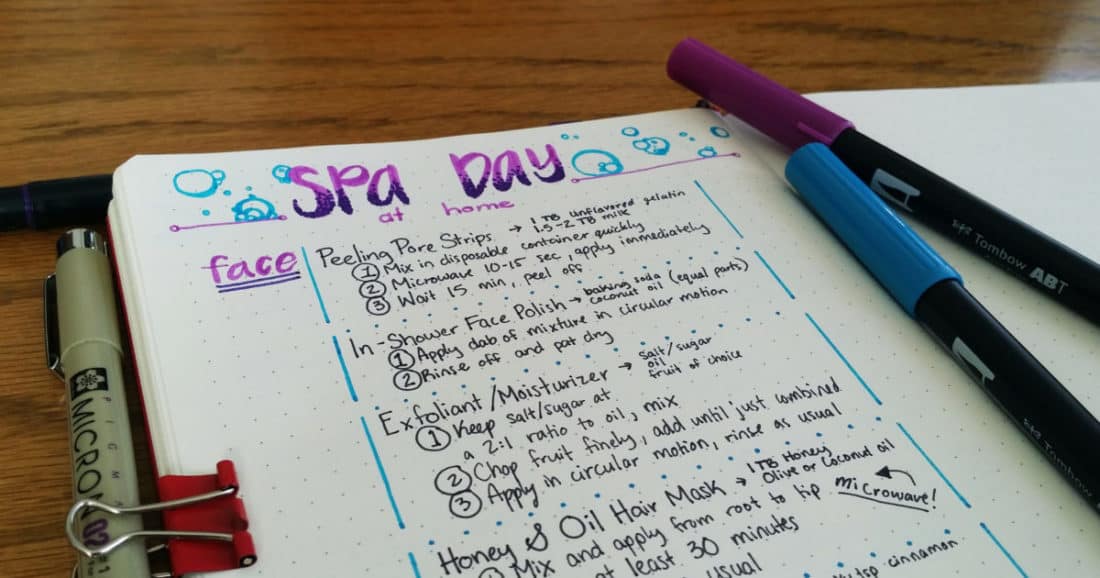 SPA DAY
at home
face
Peeling Pore Strips → 1 TB unflavored gelatin
1.5-2 TB milk
① Mix in disposable container quickly
② Microwave 10-15 sec, apply immediately
③ Wait 15 min, peel off
In-Shower Face Polish → baking soda
coconut oil (equal parts)
① Apply dab of mixture in circular motion
② Rinse off and pat dry
Exfoliant/Moisturizer → salt/sugar
oil
fruit of choice
① Keep salt/sugar at
a 2:1 ratio to oil, mix
② Chop fruit finely, add until just combined
③ Apply in circular motion, rinse as usual
Honey & Oil Hair Mask → 1 TB Honey
Olive or Coconut oil
microwave!
① Mix and apply from root to tip
at least 30 minutes
usual
tsp cinnamon
PIGMA
MICRON
02
Tombow ABT
Tombow